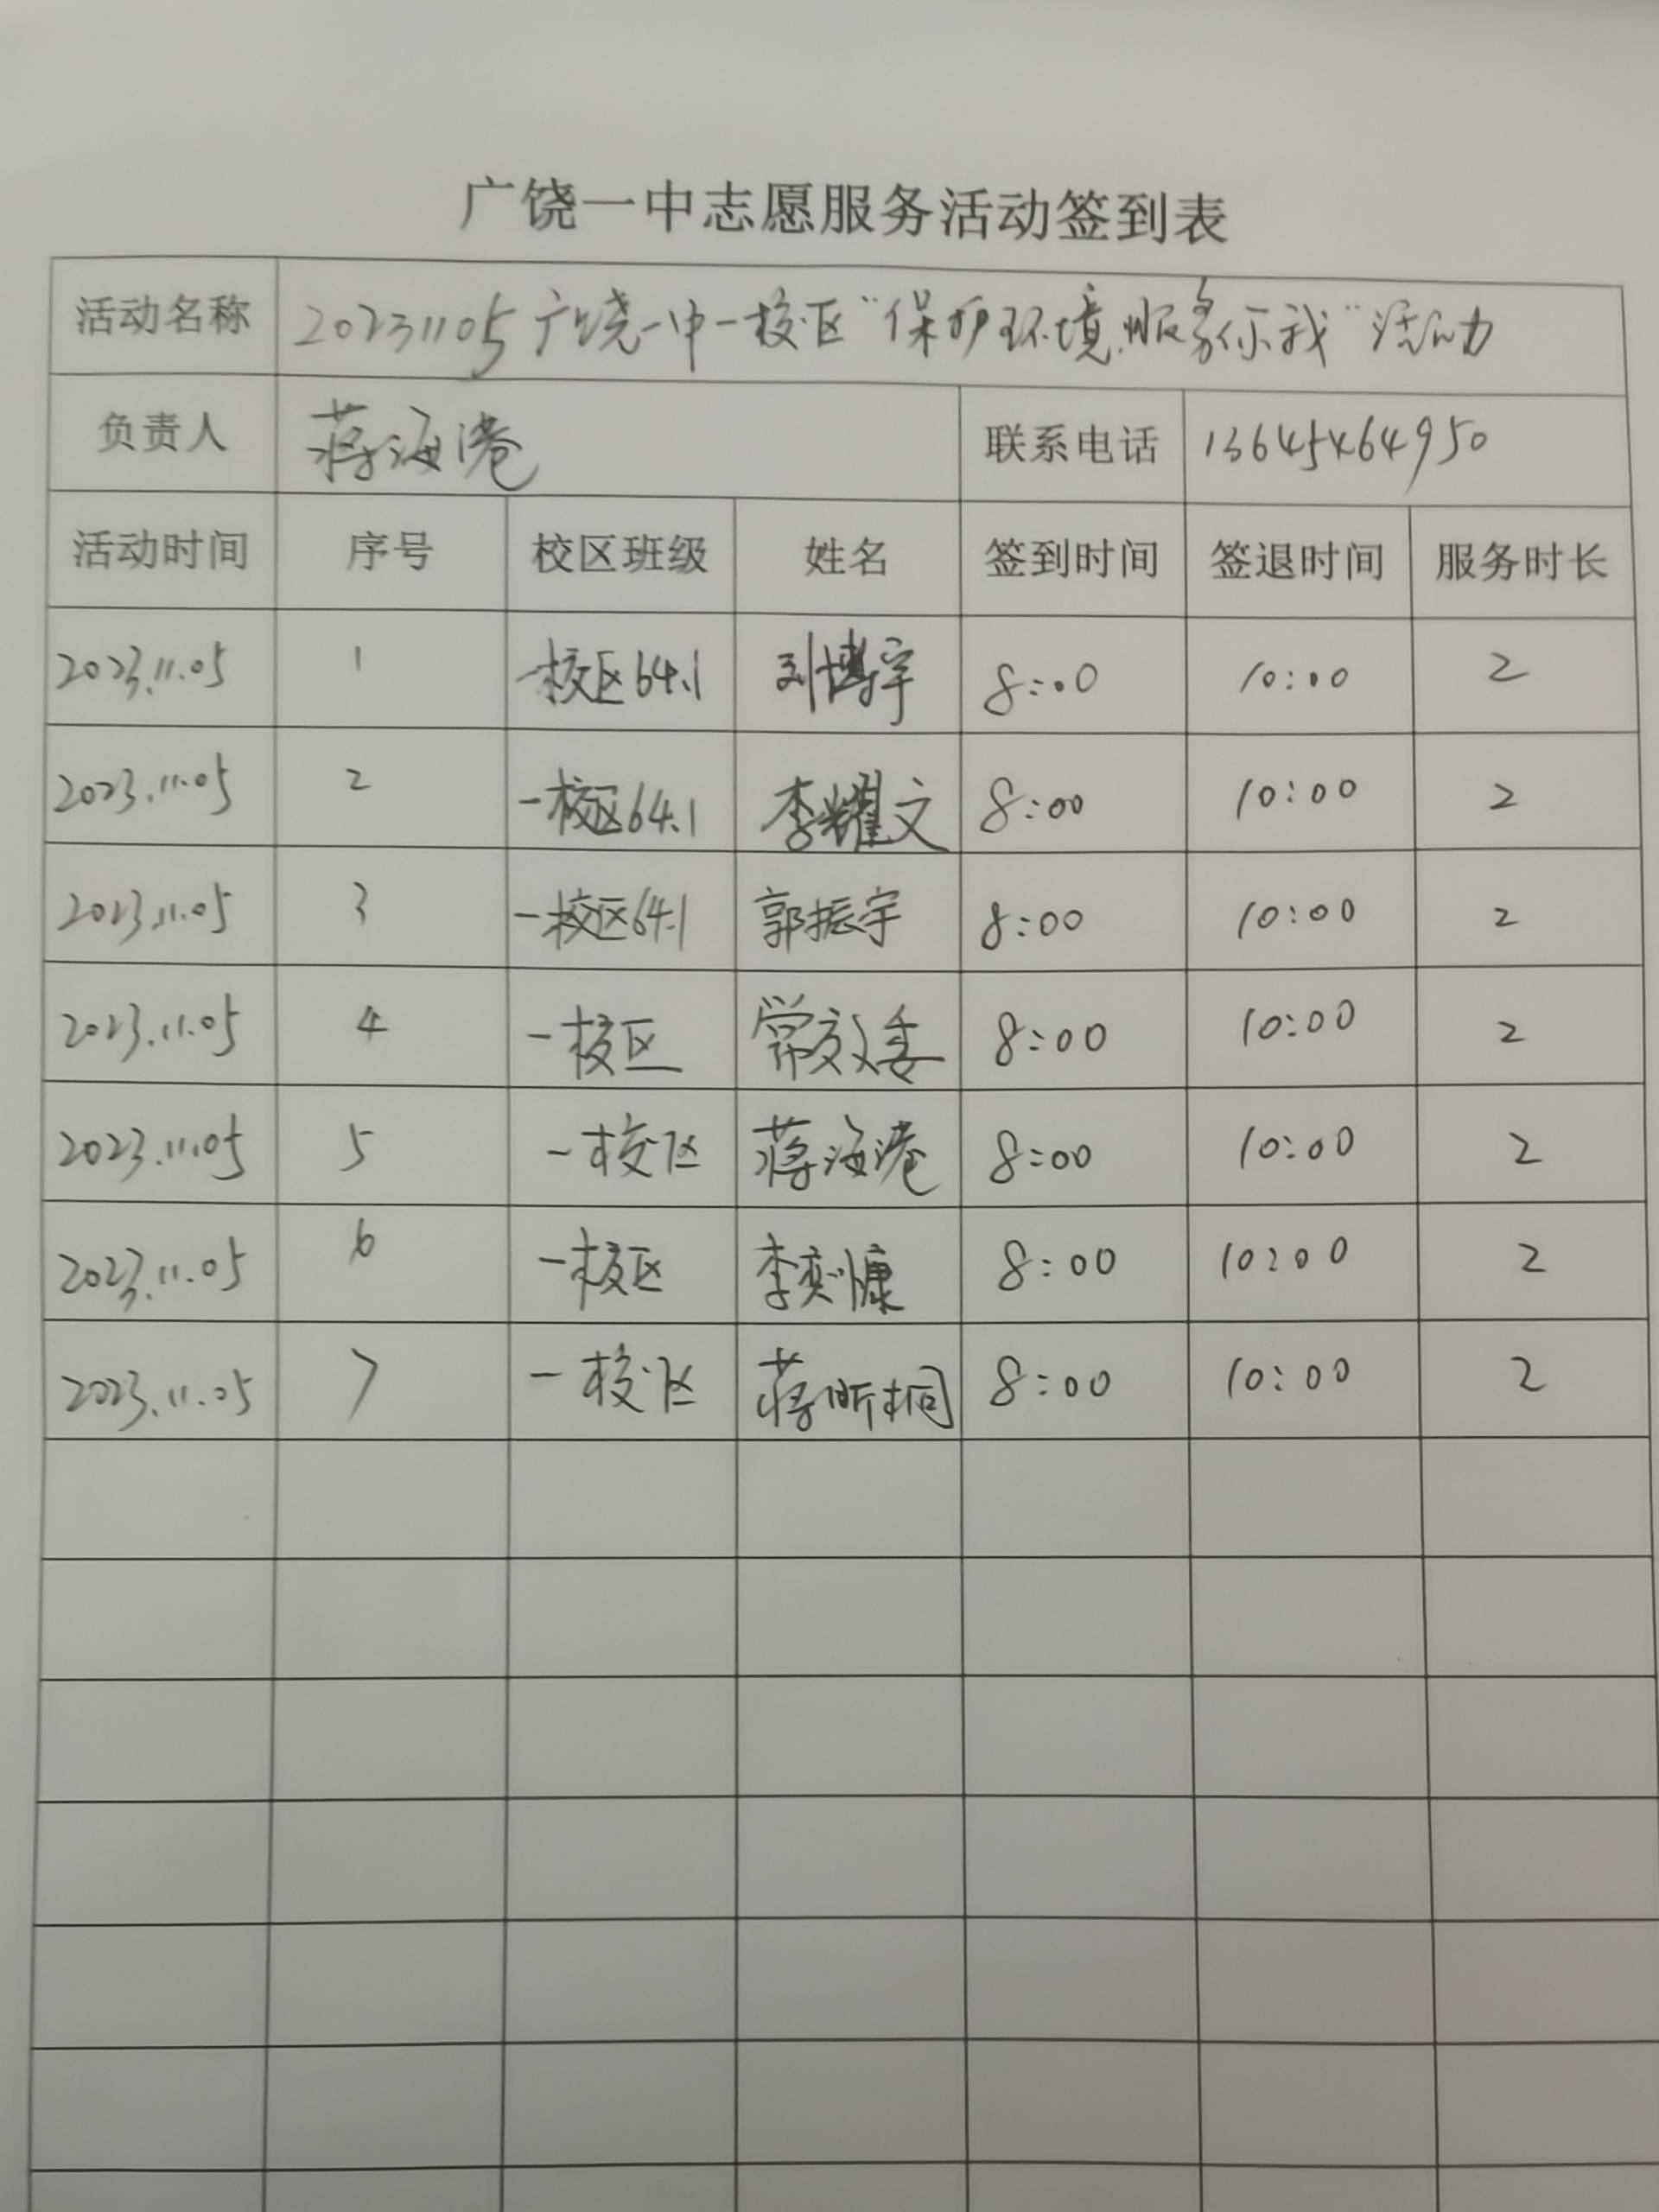 广饶一中志愿服务活动签到表
活动名称 20231105广饶一中一校区“保护环境,服务你我”活动
负责人 蒋海港 联系电话 13645464950
活动时间 序号 校区班级 姓名 签到时间 签退时间 服务时长
2023.11.05 1 一校区64.1 刘博宇 8:00 10:00 2
2023.11.05 2 一校区64.1 李耀文 8:00 10:00 2
2023.11.05 3 一校区64.1 郭振宇 8:00 10:00 2
2023.11.05 4 一校区 8:00 10:00 2
2023.11.05 5 一校区 蒋海港 8:00 10:00 2
2023.11.05 6 一校区 李奕慷 8:00 10:00 2
2023.11.05 7 一校区 蒋昕桐 8:00 10:00 2